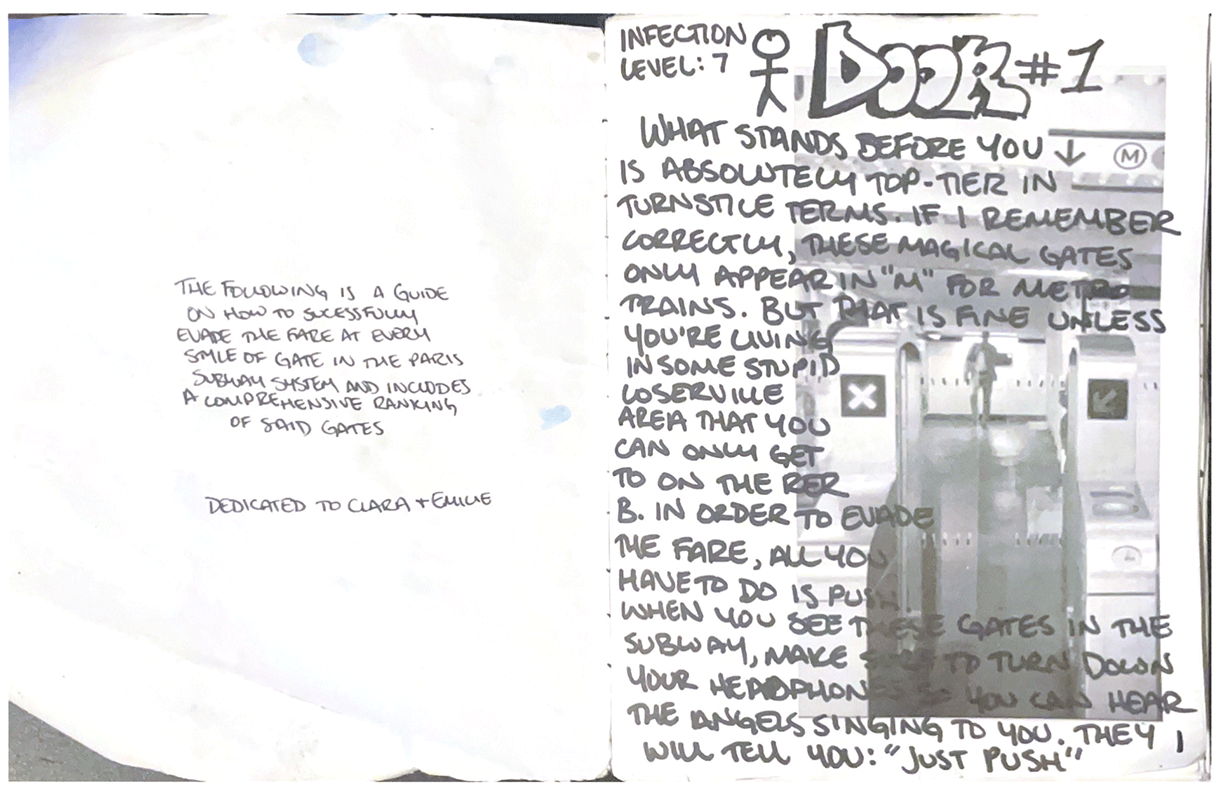 THE FOLLOWING IS A GUIDE
ON HOW TO SUCESSFULLY
EVADE THE FARE AT EVERY
STYLE OF GATE IN THE PARIS
SUBWAY SYSTEM AND INCLUDES
A COMPREHENSIVE RANKING
OF SAID GATES
DEDICATED TO CLARA + EMILIE
INFECTION
LEVEL: 7
DOOR #1
WHAT STANDS BEFORE YOU
M
IS ABSOLUTELY TOP-TIER IN
TURNSTILE TERMS. IF I REMEMBER
CORRECTLY, THESE MAGICAL GATES
ONLY APPEAR IN "M" FOR METRO
TRAINS. BUT THAT IS FINE UNLESS
YOU'RE LIVING
IN SOME STUPID
LOSERVILLE
AREA THAT YOU
CAN ONLY GET
TO ON THE RER
B. IN ORDER TO EVADE
THE FARE, ALL YOU
HAVE TO DO IS PUSH.
WHEN YOU SEE THESE GATES IN THE
SUBWAY, MAKE SURE TO TURN DOWN
YOUR HEADPHONES SO YOU CAN HEAR
THE ANGELS SINGING TO YOU. THEY
WILL TELL YOU: "JUST PUSH"
1